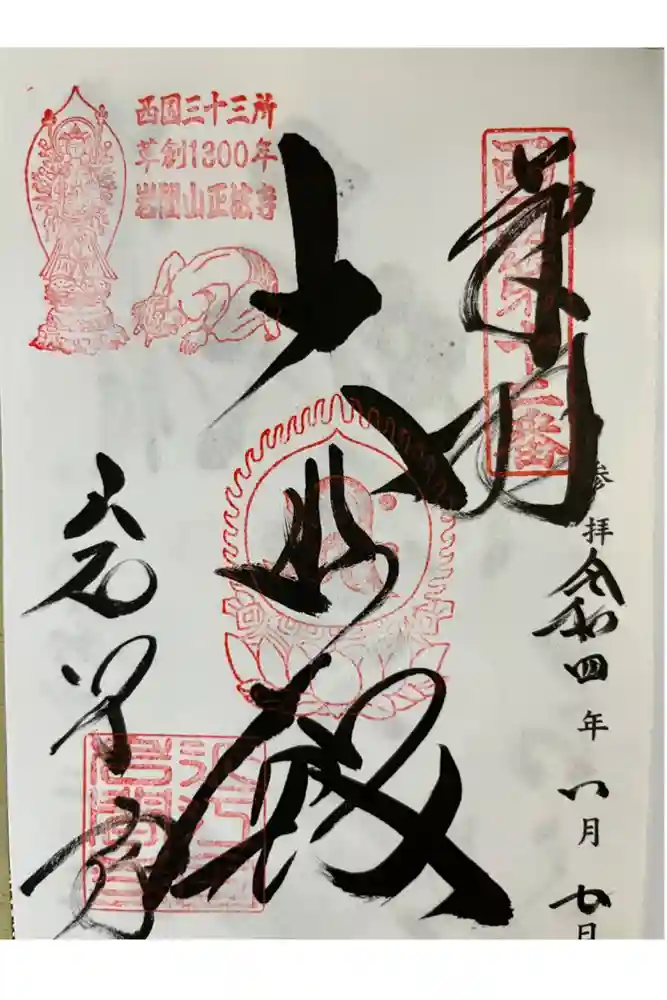 西国三十三所
草創1300年
岩間山正法寺
西国第十二番
奉拝
参拝
令和四年八月七日
大悲殿
岩間寺